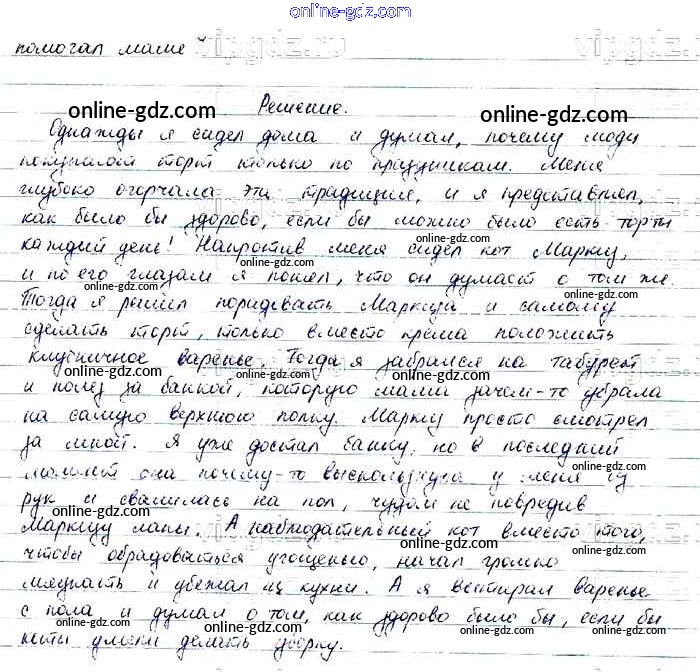 online-gdz.com
vipgdz.ru
vipgdz.ru
помогал маме
Решение.
online-gdz.com
online-gdz.com
Однажды я сидел дома и думал, почему люди
покупают торт только по праздникам. Меня
глубоко огорчала эта традиция, и я представлял,
как было бы здорово, если бы можно было есть торты
online-gdz.com
каждый день! Напротив меня сидел кот Маркиз,
и по его глазам я понял, что он думает о том же.
online-gdz.com
Тогда я решил порадовать Маркиза и самому
сделать торт, только вместо крема положить
клубничное варенье. Тогда я забрался на табурет
online-gdz.com
online-gdz.com
online-gdz.com
и полез за банкой, которую мама зачем-то убрала
на самую верхнюю полку. Маркиз просто смотрел
за мной. Я уже достал банку, но в последний
момент она почему-то выскользнула у меня из
рук и свалилась на пол, чудом не повредив
Маркизу лапы. А наблюдательный кот вместо того,
online-gdz.com
чтобы обрадоваться угощенью, начал громко
мяукать и убежал из кухни. А я вытирал варенье
с пола и думал о том, как здорово было бы, если бы
online-gdz.com
online-gdz.com
online-gdz.com
коты умели делать уборку.